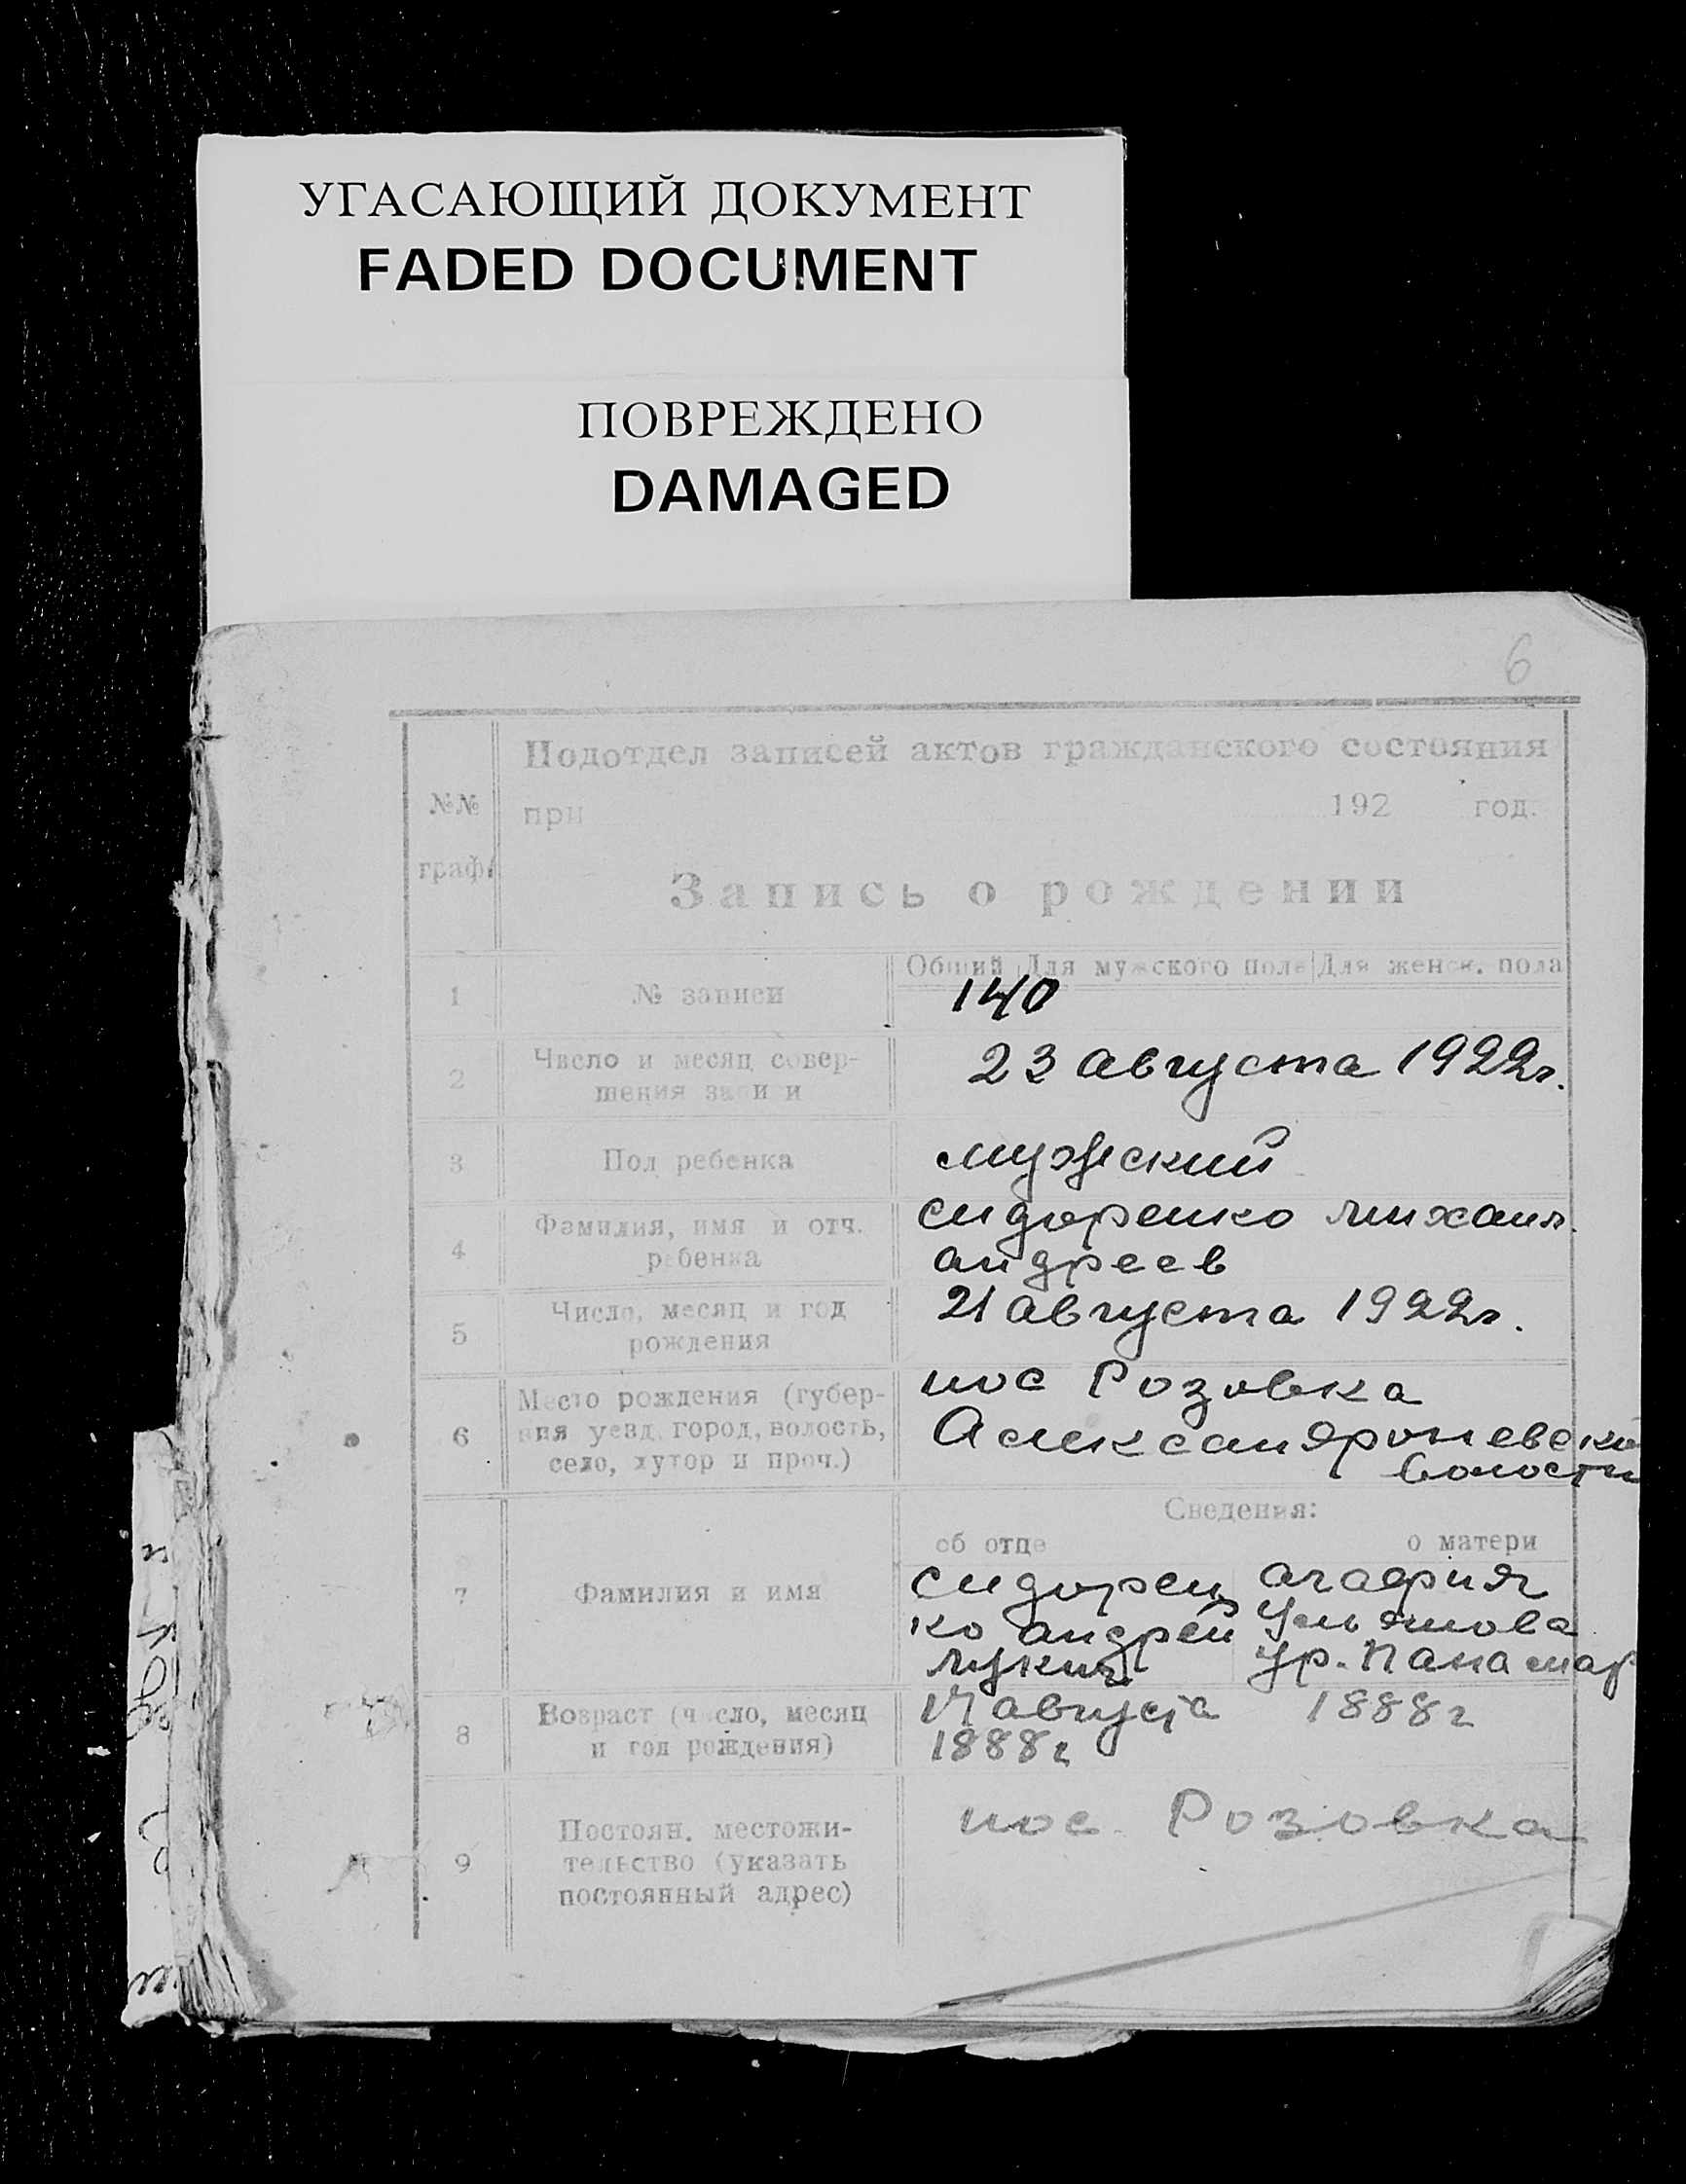 УГАСАЮЩИЙ ДОКУМЕНТ
FADED DOCUMENT
ПОВРЕЖДЕНО
DAMAGED
6
Подотдел записей актов гражданского состояния
№№
при 192 год.
граф
Запись о рождении
Общий Для мужского пола Для женск. пола
1 № записи 140
2 Число и месяц совер-
шения записи 23 августа 1922г.
3 Пол ребенка мужский
4 Фамилия, имя и отч.
ребенка
сидоренко михаил
андреев
5 Число, месяц и год
рождения
21 августа 1922г.
6 Место рождения (губер-
ния уезд, город, волость,
село, хутор и проч.)
пос Розовка
Александроневско
волости
Сведения:
об отце о матери
7 Фамилия и имя
сидорен
ко андрей
лукич
агафия
Ульянова
ур. Панамар
8 Возраст (число, месяц
и год рождения)
17 августа
1888г
1888г
9 Постоян. местожи-
тельство (указать
постоянный адрес)
пос. Розовка